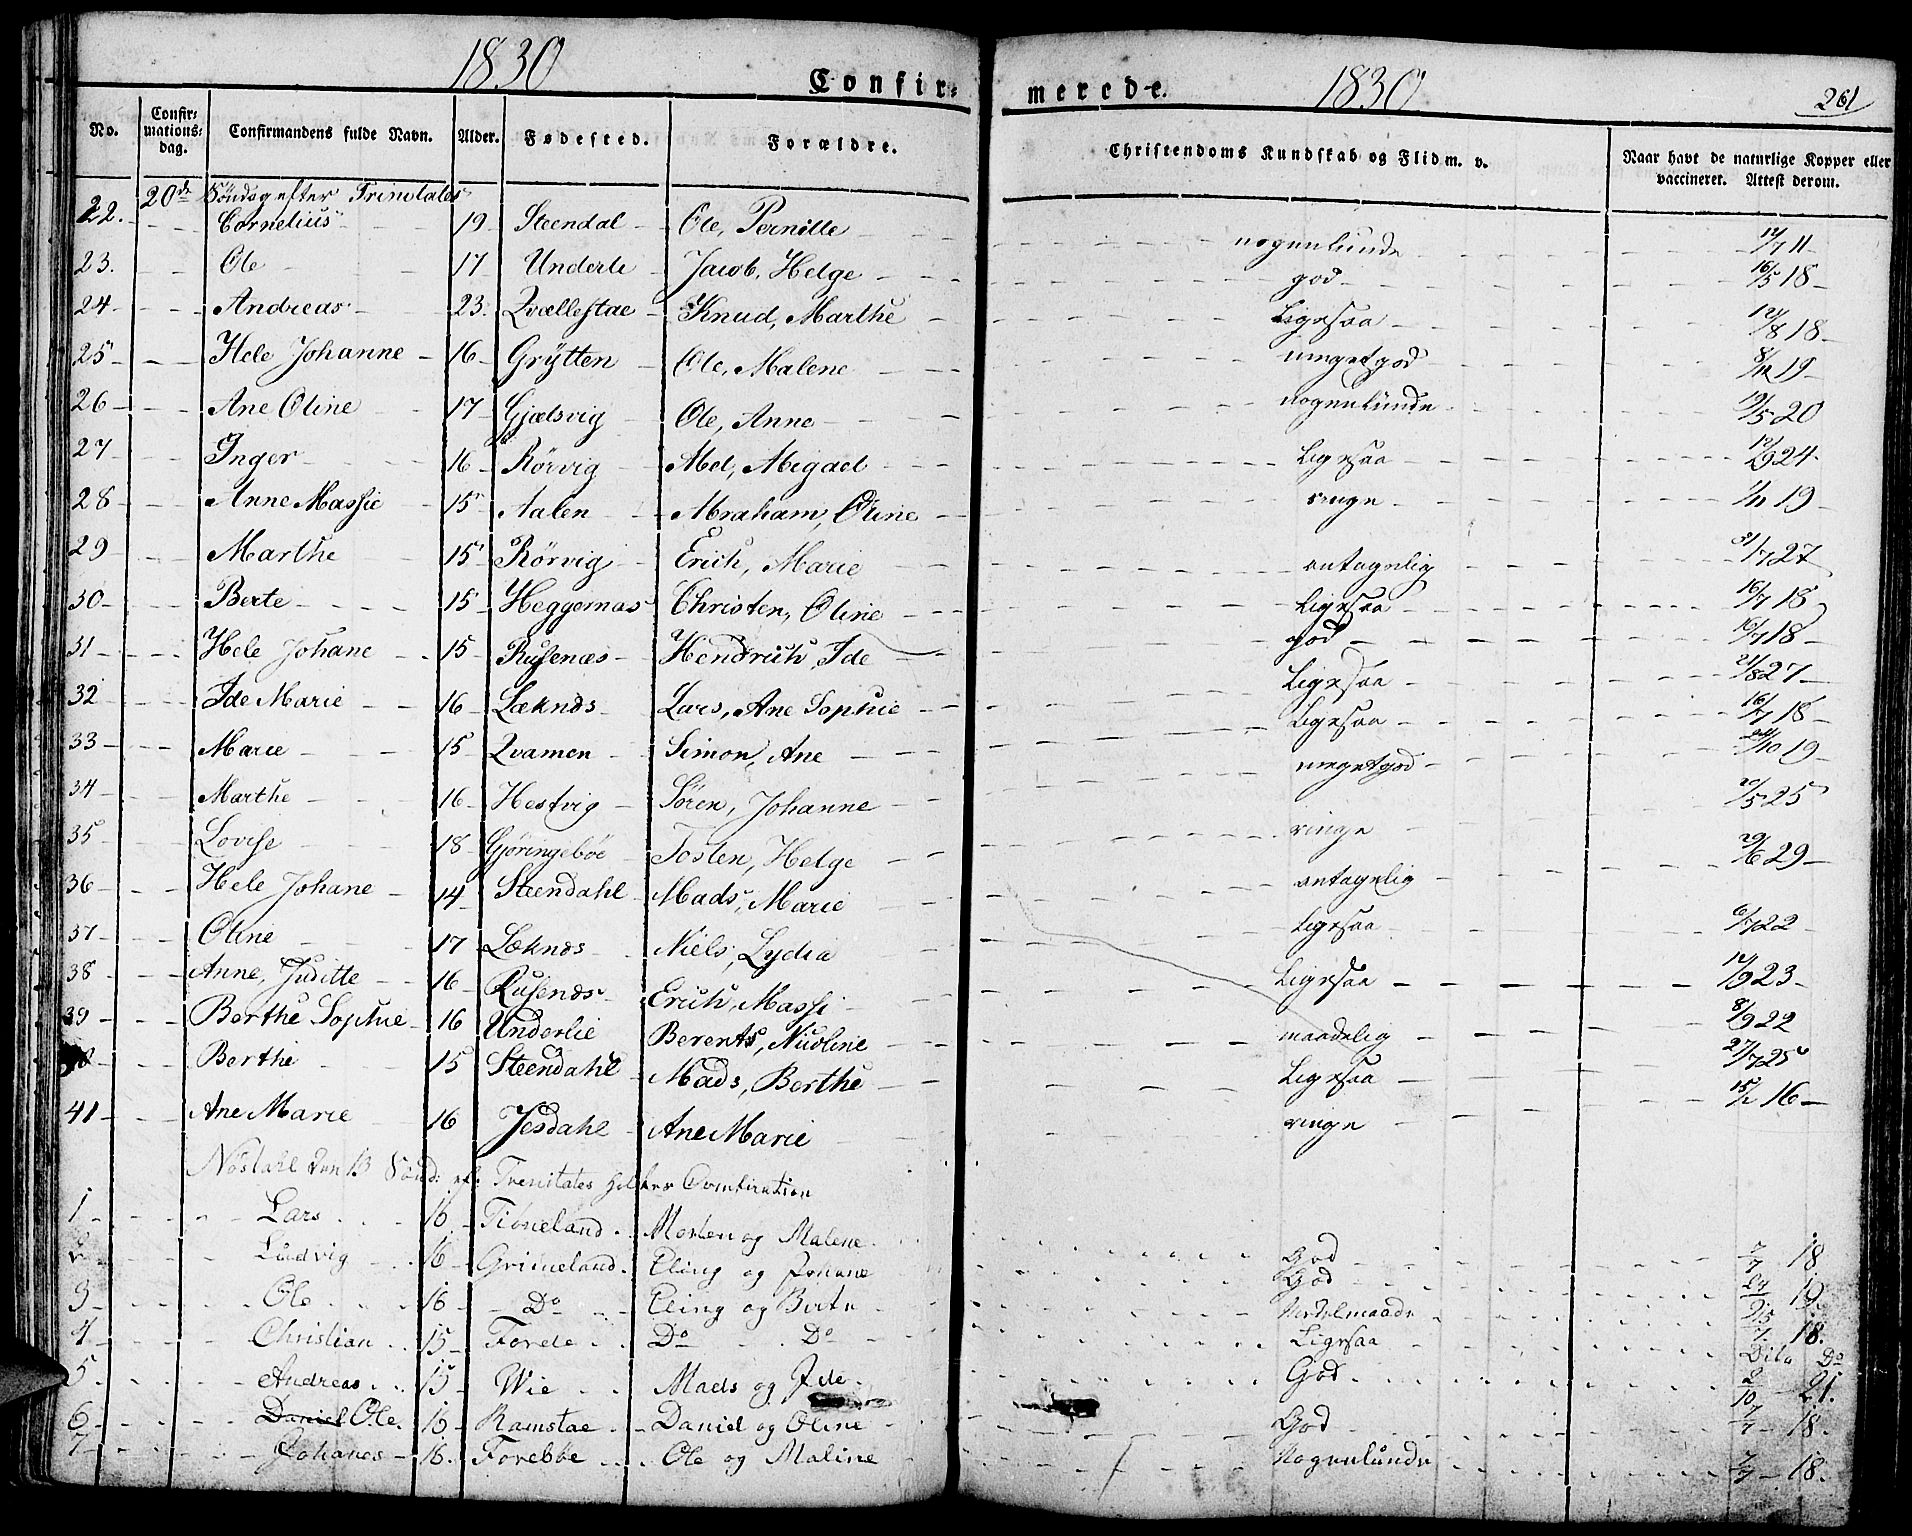 1830 Confir= merede. 1830 261
No. Confir=mations=dag. Confirmandens fulde Navn. Alder. Fødested. Forældre. Christendoms Kundskab og Flid m. v. Naar havt de naturlige Kopper eller vaccineret. Attest derom.
20de Søndag efter Trinitates
22. Cornelius 19 Steendal Ole, Pernille nogenlunde 12/7 11
23. Ole 17 Underli Jacob, Helge god 16/5 18
24 Andreas 23. Qvællestae Knud, Marthe Ligesaa 12/8 18
25 Hele Johanne 16 Grytten Ole, Malene meget god 8/12 19
26 Ane Oline 17 Gjælsvig Ole, Anne nogenlunde 19/5 20
27 Inger 16 Rörvig Abel, Abigael Ligesaa 12/9 24
28 Anne Massie 15 Aalen Abraham, Oline ringe 1/11 19
29 Marthe 15 Rörvig Erich, Marie antagelig 31/7 27
30 Berte 15 Heggernæs Christen, Oline Ligesaa 16/7 18
31 Hele Johane 15 Rusenæs Hendrich, Ide god 16/7 18
32 Ide Marie 16 Læknæs Lars, Ane Sophie Ligesaa 21/8 27
33 Marie 15 Qvamen Simon, Ane Ligesaa 16/7 18
34 Marthe 16 Hestvig Sören, Johanne meget god /10 19
35 Lovise 18 Gjöringeböe Tosten, Helge ringe 2/5 25
36 Hele Johane 14 Steendahl Mads, Marie antagelig 29/6 29
37 Oline 17 Læknæs Niels, Lydia Ligesaa 6/7 22
38 Anne, Juditte 16 Rusenæs Erich, Massi Ligesaa 12/9 23
39 Berthe Sophie 16 Underlie Berents, Nicoline maadelig 8/9 22
Berthe 15 Steendahl Mads, Berthe Ligesaa 27/7 25
41 Ane Marie 16 Jesdahl Ane Marie ringe 15/2 16
Nöstahl den 13 Sønd: ef: Trenitates
1 Lars 16 Tiöneland Morten og Malene God 7/7 18
2 Ludvig 16 Grimeland Eling og Johane God 19
3 Ole 16 Do Eling og Berte Maadelmaade 18.
4 Christian 15 Forede Do Do Ligesaa Dito Do
5 Andreas 15 Wie Mads og Ide God 2/10 21.
6 Daniel Ole 15 Ramstae Daniel og Oline God 7/7 18.
7 Johanes 16. Foreböe Ole og Maline Nogenlunde 7/7 18.